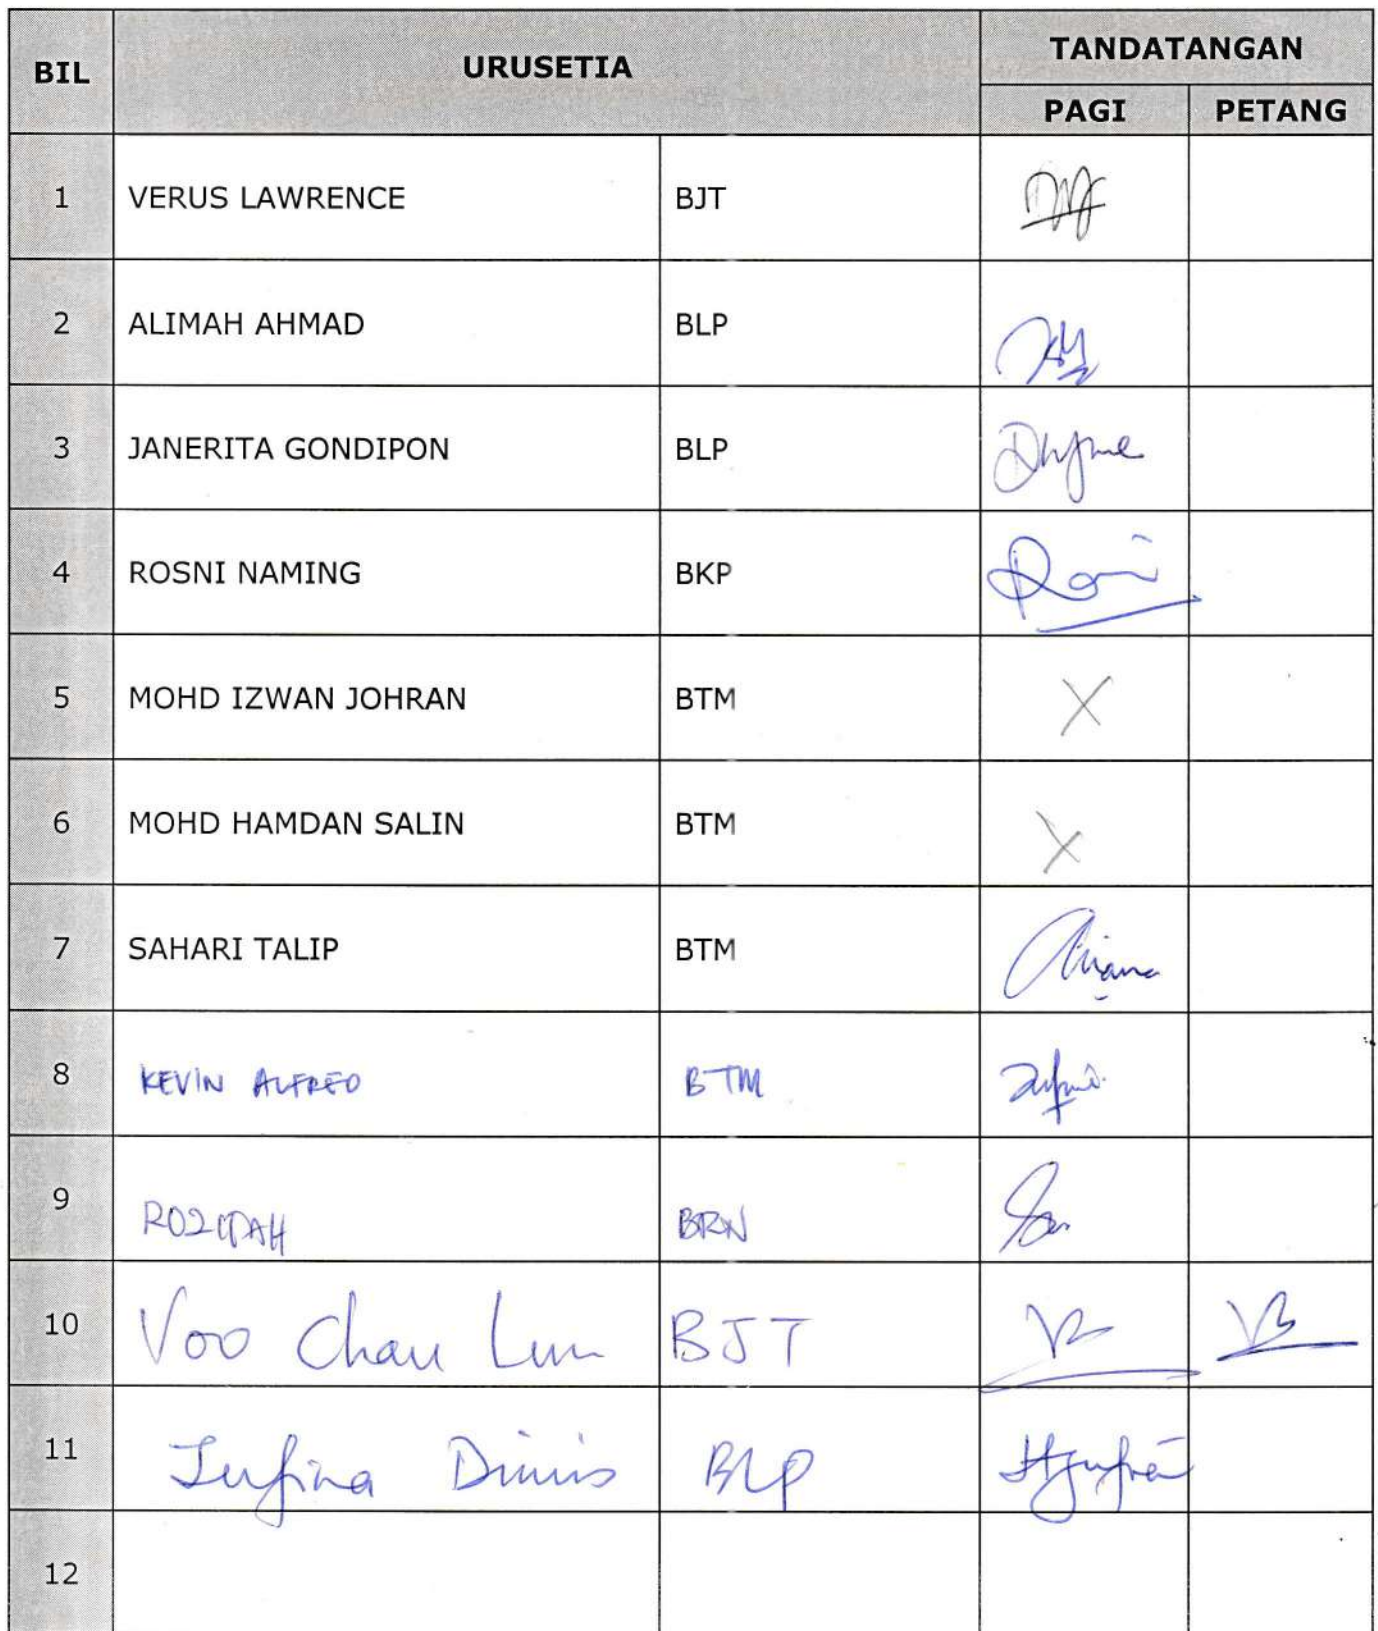 BIL URUSETIA TANDATANGAN
PAGI PETANG
1 VERUS LAWRENCE BJT
2 ALIMAH AHMAD BLP
3 JANERITA GONDIPON BLP
4 ROSNI NAMING BKP
5 MOHD IZWAN JOHRAN BTM X
6 MOHD HAMDAN SALIN BTM X
7 SAHARI TALIP BTM
8 KEVIN ALFRED BTM
9 ROZIDAH BRN
10 Voo Chau Lun BJT
11 Jufina Dinis BLP
12